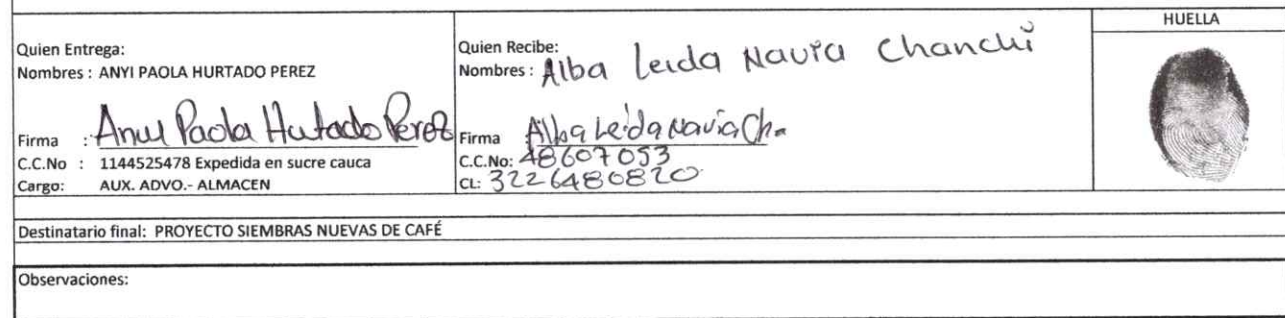 HUELLA
Quien Entrega:
Nombres : ANYI PAOLA HURTADO PEREZ
Firma : Anyi Paola Hurtado Perez
C.C.No : 1144525478 Expedida en sucre cauca
Cargo: AUX. ADVO.- ALMACEN
Quien Recibe:
Nombres : Alba Leida Navia Chanchi
Firma Alba Leida Navia Ch.
C.C.No: 48607053
CL: 3226480820
Destinatario final: PROYECTO SIEMBRAS NUEVAS DE CAFÉ
Observaciones: